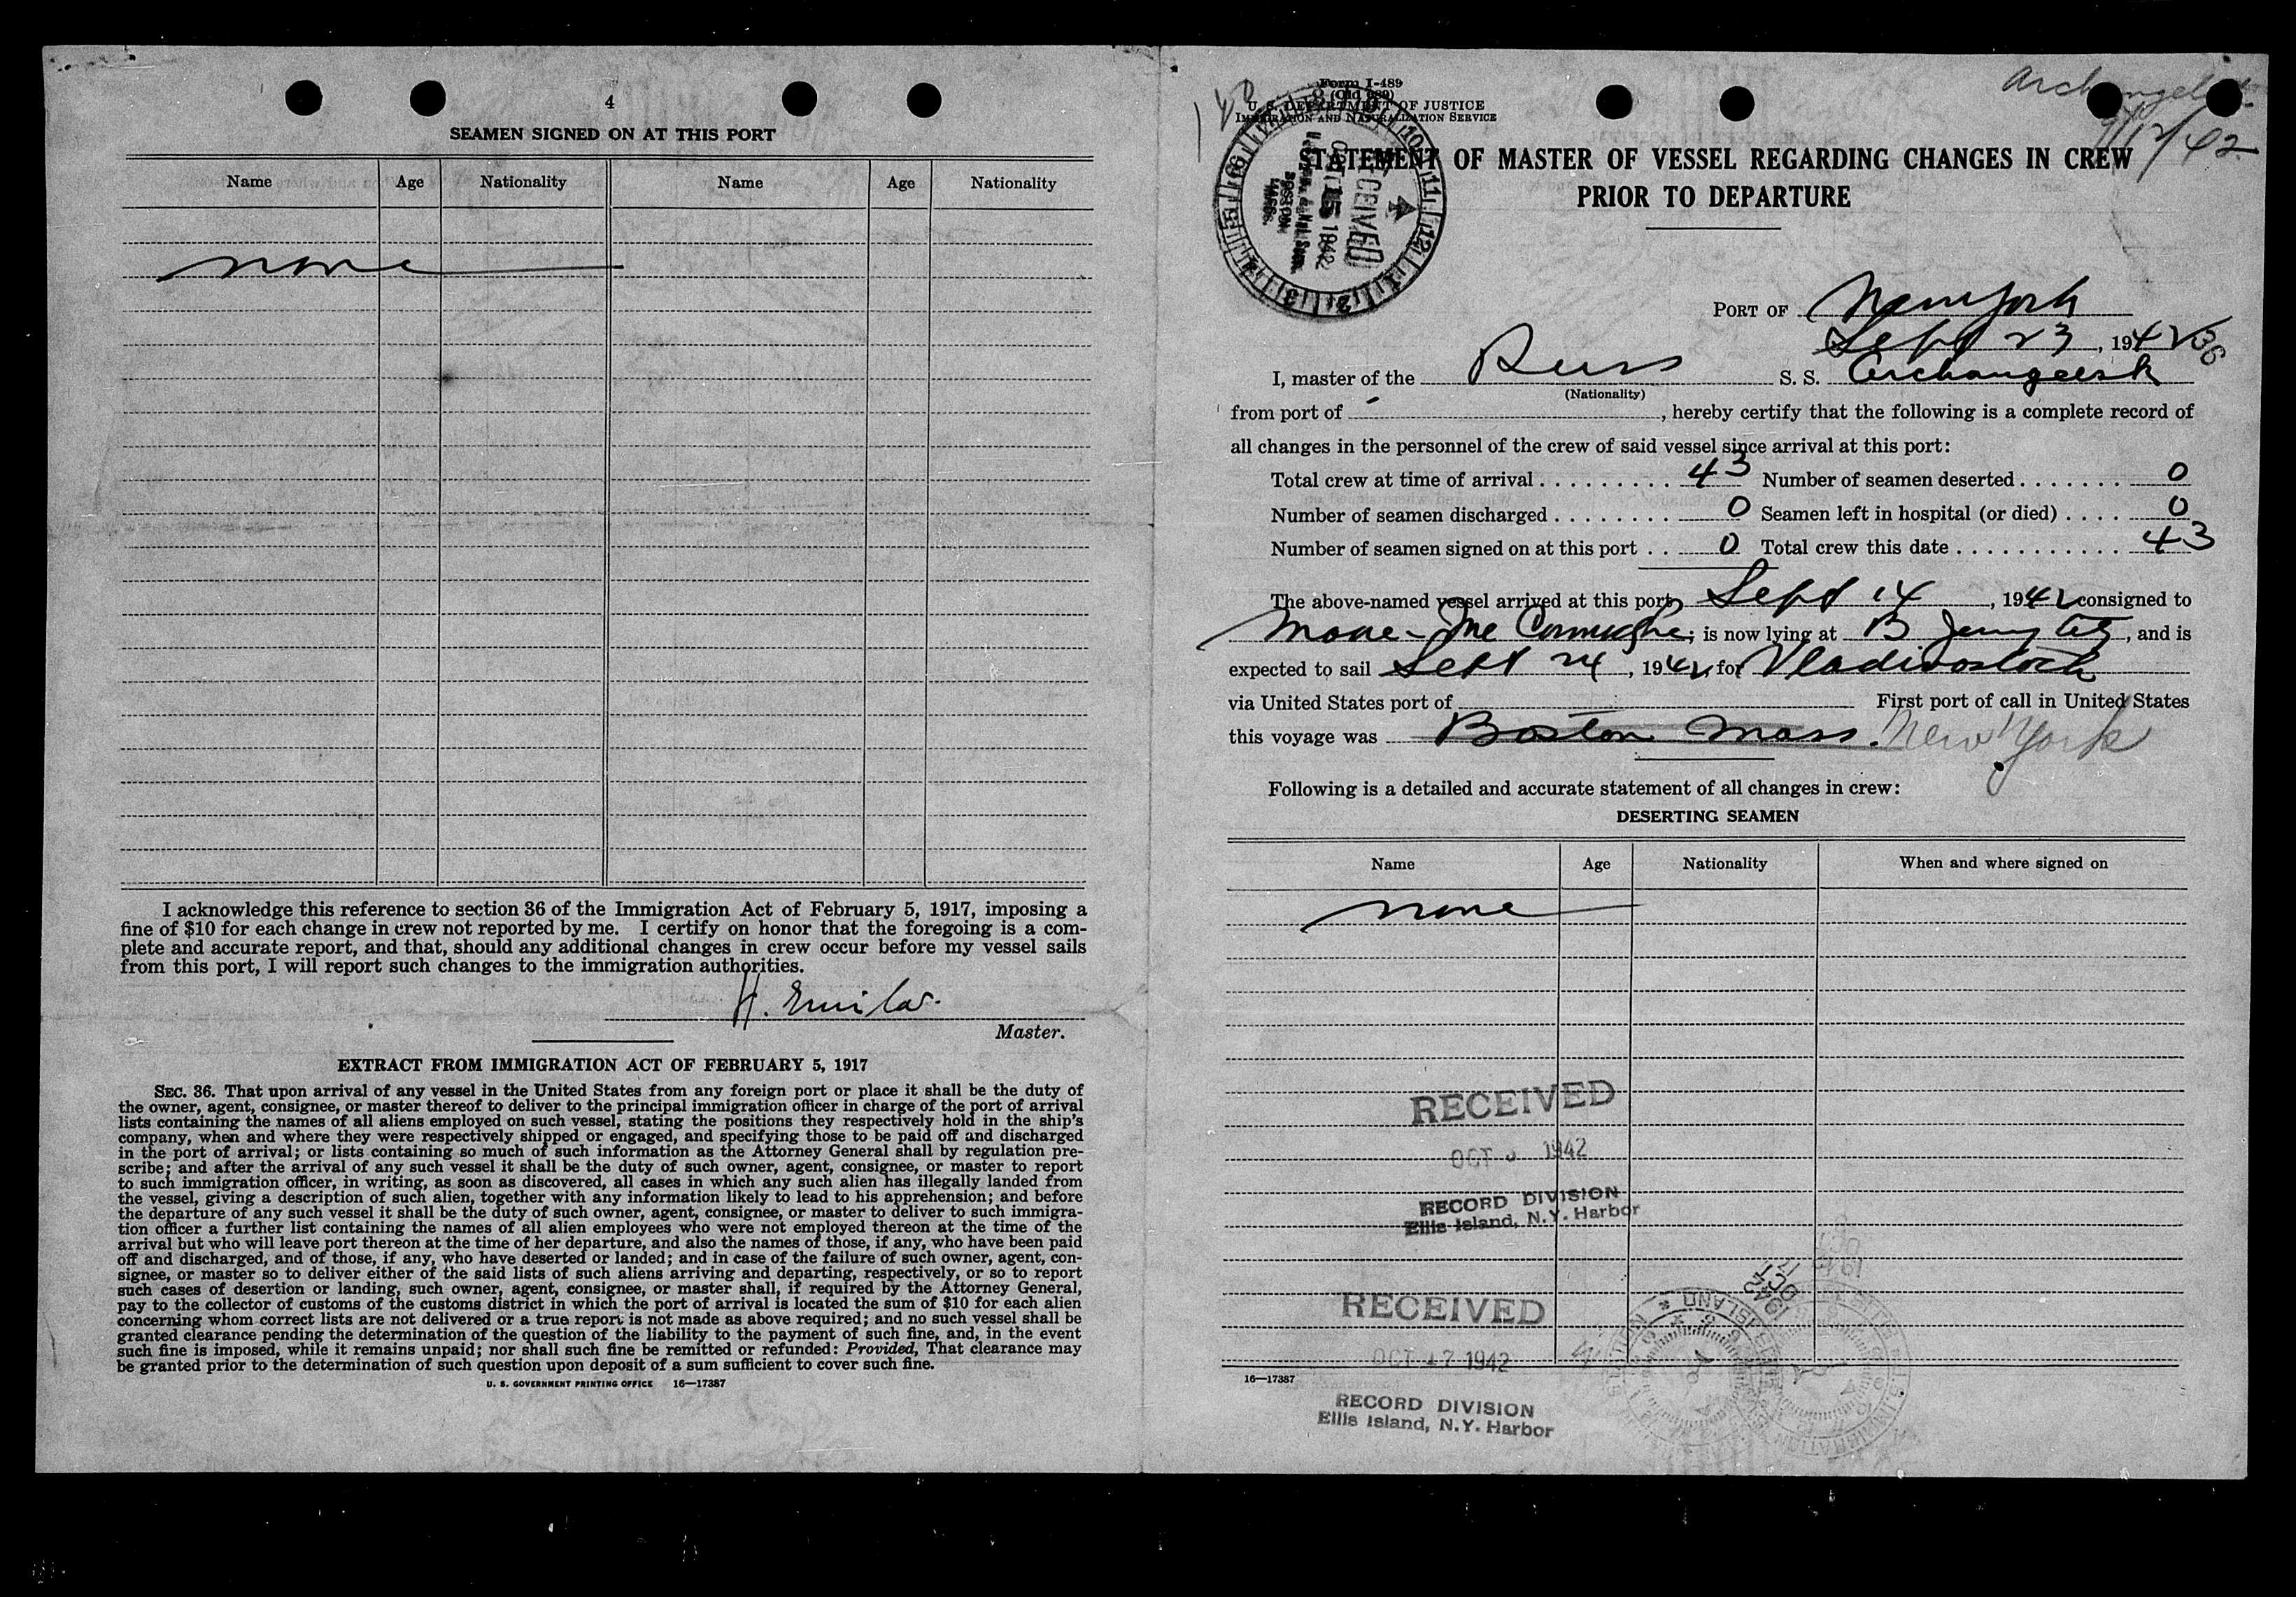 4
SEAMEN SIGNED ON AT THIS PORT
Name Age Nationality Name Age Nationality
none
I acknowledge this reference to section 36 of the Immigration Act of February 5, 1917, imposing a
fine of $10 for each change in crew not reported by me. I certify on honor that the foregoing is a com-
plete and accurate report, and that, should any additional changes in crew occur before my vessel sails
from this port, I will report such changes to the immigration authorities.
H.
Master.
EXTRACT FROM IMMIGRATION ACT OF FEBRUARY 5, 1917
SEC. 36. That upon arrival of any vessel in the United States from any foreign port or place it shall be the duty of
the owner, agent, consignee, or master thereof to deliver to the principal immigration officer in charge of the port of arrival
lists containing the names of all aliens employed on such vessel, stating the positions they respectively hold in the ship's
company, when and where they were respectively shipped or engaged, and specifying those to be paid off and discharged
in the port of arrival; or lists containing so much of such information as the Attorney General shall by regulation pre-
scribe; and after the arrival of any such vessel it shall be the duty of such owner, agent, consignee, or master to report
to such immigration officer, in writing, as soon as discovered, all cases in which any such alien has illegally landed from
the vessel, giving a description of such alien, together with any information likely to lead to his apprehension; and before
the departure of any such vessel it shall be the duty of such owner, agent, consignee, or master to deliver to such immigra-
tion officer a further list containing the names of all alien employees who were not employed thereon at the time of the
arrival but who will leave port thereon at the time of her departure, and also the names of those, if any, who have been paid
off and discharged, and of those, if any, who have deserted or landed; and in case of the failure of such owner, agent, con-
signee, or master so to deliver either of the said lists of such aliens arriving and departing, respectively, or so to report
such cases of desertion or landing, such owner, agent, consignee, or master shall, if required by the Attorney General,
pay to the collector of customs of the customs district in which the port of arrival is located the sum of $10 for each alien
concerning whom correct lists are not delivered or a true report is not made as above required; and no such vessel shall be
granted clearance pending the determination of the question of the liability to the payment of such fine, and, in the event
such fine is imposed, while it remains unpaid; nor shall such fine be remitted or refunded: Provided, That clearance may
be granted prior to the determination of such question upon deposit of a sum sufficient to cover such fine.
U. S. GOVERNMENT PRINTING OFFICE 16—17387
Form I-489
(Old 689)
U. S. DEPARTMENT OF JUSTICE
IMMIGRATION AND NATURALIZATION SERVICE
RECEIVED
OCT 15 1942
BOSTON
MASS.
STATEMENT OF MASTER OF VESSEL REGARDING CHANGES IN CREW
PRIOR TO DEPARTURE
PORT OF New York
Sept 23, 1942
I, master of the Russ S. S. Archangelsk
(Nationality)
from port of , hereby certify that the following is a complete record of
all changes in the personnel of the crew of said vessel since arrival at this port:
Total crew at time of arrival 43 Number of seamen deserted 0
Number of seamen discharged 0 Seamen left in hospital (or died) 0
Number of seamen signed on at this port 0 Total crew this date 43
The above-named vessel arrived at this port Sept 14, 1942 consigned to
; is now lying at , and is
expected to sail Sept 24, 1942, for Vladivostock
via United States port of First port of call in United States
this voyage was Boston Mass. New York
Following is a detailed and accurate statement of all changes in crew:
DESERTING SEAMEN
Name Age Nationality When and where signed on
none
RECEIVED
OCT 1942
RECORD DIVISION
Ellis Island, N.Y. Harbor
RECEIVED
OCT 17 1942
RECORD DIVISION
Ellis Island, N.Y. Harbor
16—17387